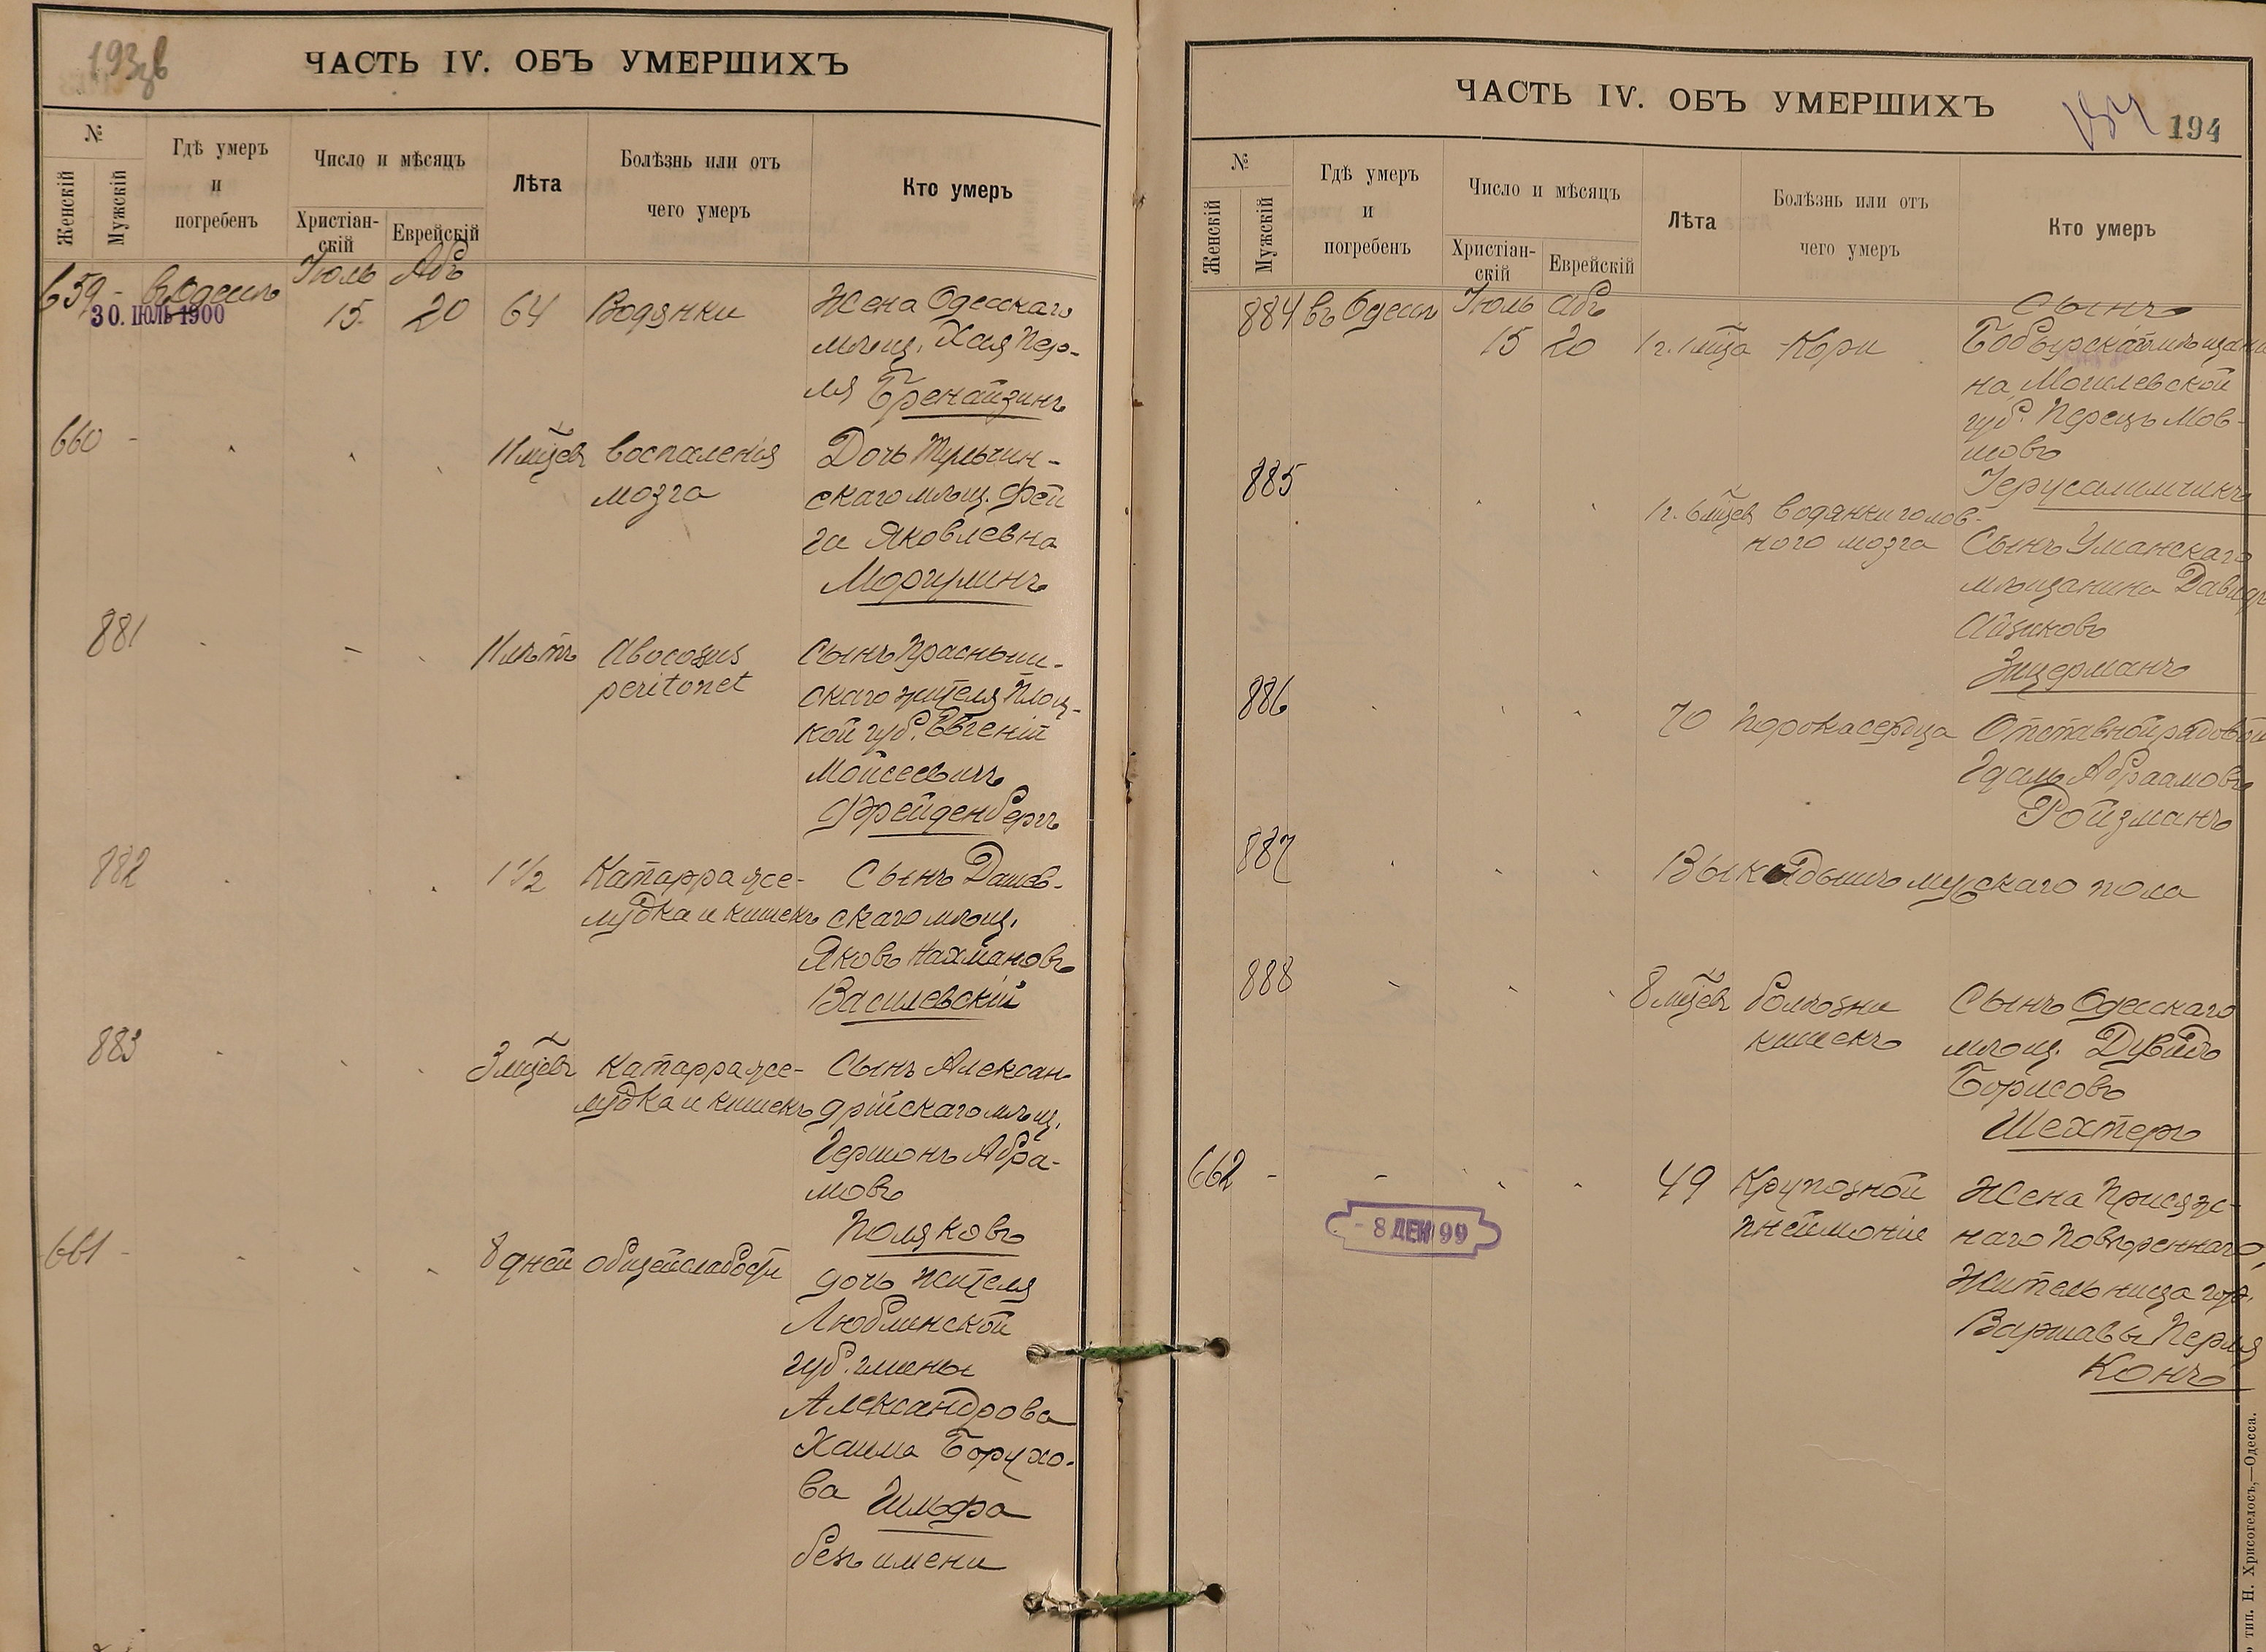 193 об
ЧАСТЬ IV. ОБЪ УМЕРШИХЪ
№
Женскій
Мужскій
Гдѣ умеръ
и
погребенъ
Число и мѣсяцъ
Христіан-
скій
Еврейскій
Лѣта
Болѣзнь или отъ
чего умеръ
Кто умеръ
659 - в Одессѣ Іюль Абъ
30. ІЮЛЬ 1900
15 20 64 Водянки Жена Одесскаго
мѣщ. Хая Пер-
ля Бренайзинъ
660 - 11 мѣцевъ воспаленія Дочь Тульчин-
мозга скаго мѣщ. Фей
га Яковлевна
Моргулинъ
881 11 лѣтъ peritonet Сынъ Прасныш-
скаго жителя Плоц-
кой губ. Евгеній
Мойсеевичъ
Фрейденбергъ
882 1 1/2 Катарра же- Сынъ Дашев-
лудка и кишекъ скаго мѣщ.
Яковъ Нахмановъ
Василевскій
883 3 мѣцевъ Катарра же- Сынъ Алексан
лудка и кишекъ дрійскаго мѣщ.
Гершонъ Абра-
мовъ
Поляковъ
661 - 8 дней общей слабости дочь жителя
Люблинской
губ. гмины
Александрова
Хаима Борухо-
ва Шльфра
безъ имени
ЧАСТЬ IV. ОБЪ УМЕРШИХЪ
194
№
Женскій
Мужскій
Гдѣ умеръ
и
погребенъ
Число и мѣсяцъ
Христіан-
скій
Еврейскій
Лѣта
Болѣзнь или отъ
чего умеръ
Кто умеръ
884 въ Одессѣ Іюль Абъ Сынъ
15 20 1 г. 1 мѣца Кори мѣщани
на, Могилевской
губ. Перецъ Мов-
шовъ
Іерусалимчикъ
885 1 г. 6 мѣцевъ водянки голов-
ного мозга Сынъ Уманскаго
мѣщанина Давидъ
Айзиковъ
Зицерманъ
886 70 порока сердца Отставной рядовой
Гдаль Абраамовъ
Ройзманъ
887 Выкидышъ мужскаго пола
888 8 мѣцевъ болѣзни Сынъ Одесскаго
кишекъ мѣщ. Дувидъ
Борисовъ
Шехтеръ
662 - 49 Крупозной Жена Присяж-
пнеймоніе наго Повѣреннаго,
- 8 ДЕК 99
Жительница гор.
Варшавы Перля
Конъ
тип. Н. Хрисогелосъ,—Одесса.